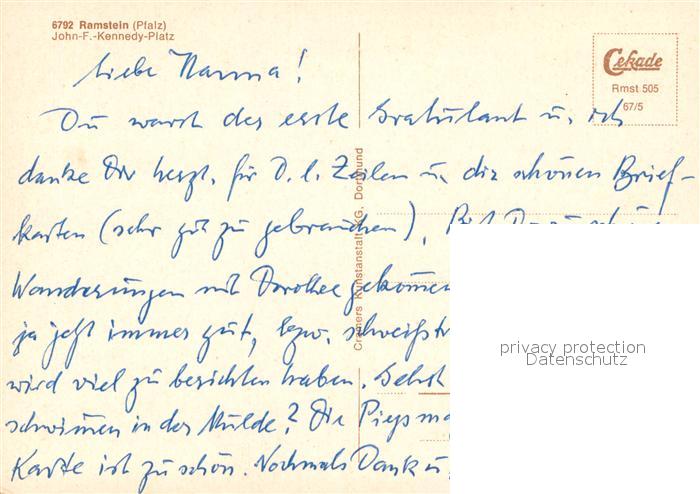 6792 Ramstein (Pfalz)
John-F.-Kennedy-Platz
Cekade
Rmst 505
67/5
Liebe Nanna!
Du warst der erste Gratulant u. ich
danke Dir herzl. für D. l. Zeilen u. die schönen Brief-
karten (sehr gut zu gebrauchen). Bist Du zu
Wanderungen mit Dorothee gekommen
ja jetzt immer gut, bzw.
wird viel zu berichten haben. Gehst
schwimmen in der Mulde? Die
Karte ist zu schön. Nochmals Dank u.
Cramers Kunstanstalt KG, Dortmund
privacy protection
Datenschutz